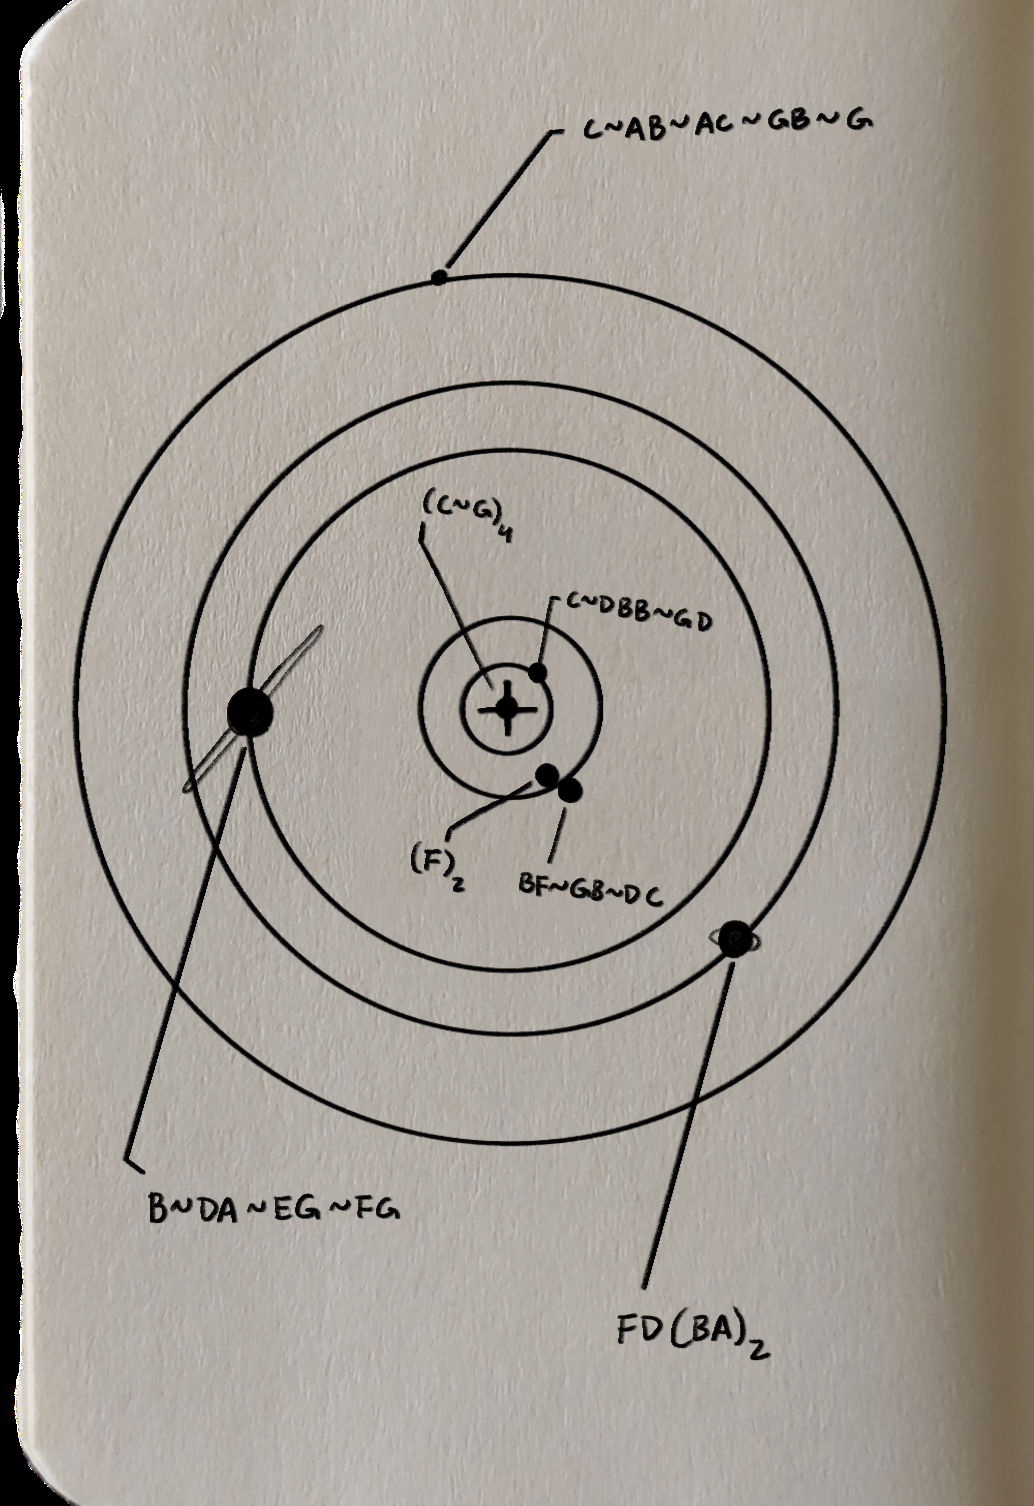 C~AB~AC~GB~G
(C~G)₄
C~DBB~GD
(F)₂
BF~GB~DC
B~DA~EG~FG
FD(BA)₂